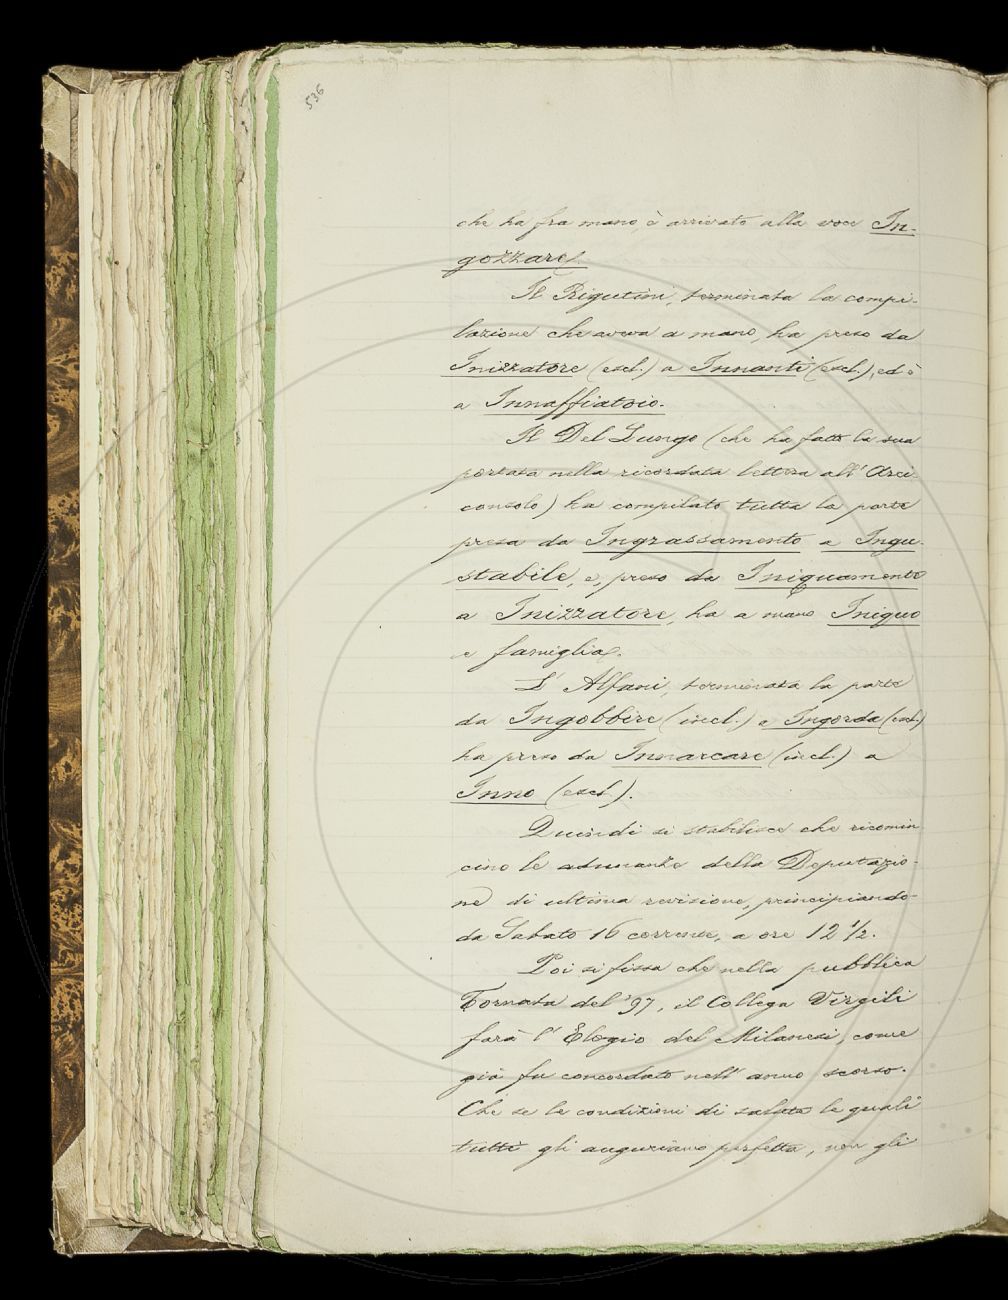 536
che ha fra mano, è arrivato alla voce In-
gozzare.
Il Rigutini, terminata la compi-
lazione che aveva a mano, ha preso da
Inizzatore (escl.) a Innanti (escl.), ed è
a Innaffiatoio.
Il Del Lungo (che ha fatto la sua
portata nella ricordata lettera all'Arci-
consolo) ha compilato tutta la parte
presa da Ingrassamento a Ingu-
stabile, e, preso da Iniquamente
a Inizzatore, ha a mano Iniquo
e famiglia.
L'Alfani, terminata la parte
da Ingobbire (incl.) a Ingorda (escl.)
ha preso da Innarcare (incl.) a
Inno (escl.).
Quindi si stabilisce che ricomin
cino le adunanze della Deputazio-
ne di ultima revisione, principiando
da Sabato 16 corrente, a ore 12 1/2.
Poi si fissa che nella pubblica
Tornata del '97, il Collega Virgili
farà l'Elogio del Milanesi, come
già fu concordato nell'anno scorso.
Che se le condizioni di salute le quali
tutti gli auguriamo perfetta, non gli